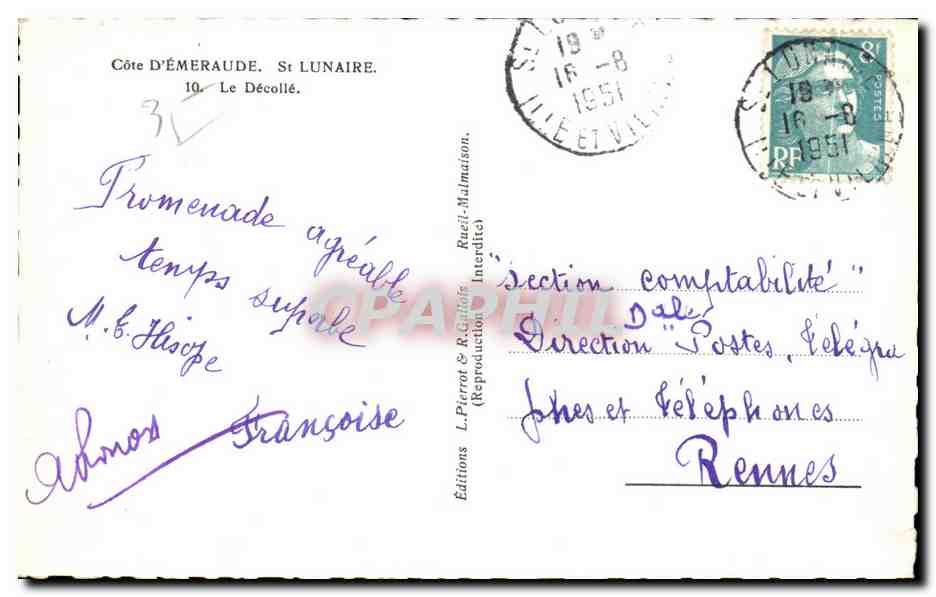 Côte D'ÉMERAUDE. St LUNAIRE.
10. Le Décollé.
3
Promenade agréable
temps superbe
Françoise
Éditions L. Pierrot & R. Gallois Rueil-Malmaison.
(Reproduction Interdite)
CPAPHIL
19
16 -8
1951
ILLE ET VILAINE
8f
POSTES
RF
19
16 -8
1951
"section comptabilité"
Direction Postes, Télégra
phes et Téléphones
Rennes